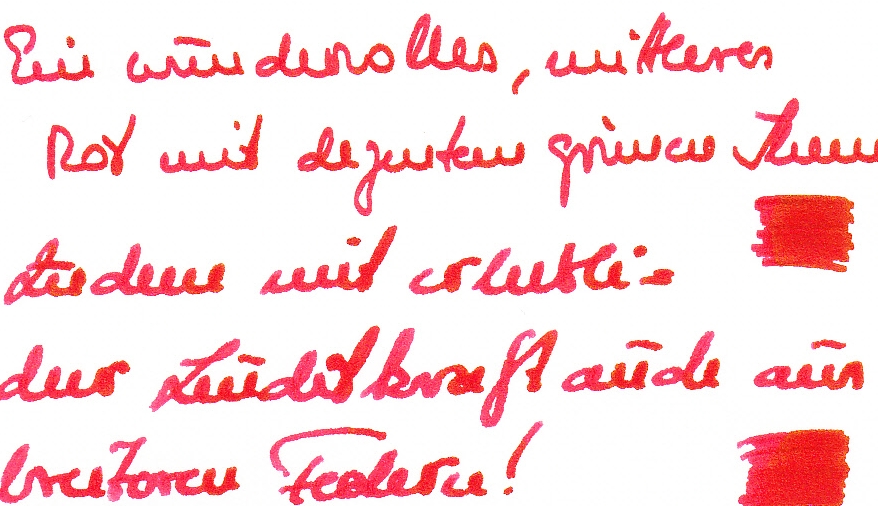 Ein wundervolles, mittleres
Rot mit dezentem grünen Sheen
Zudem mit erhebli-
cher Leuchtkraft auch aus
breiteren Federn!